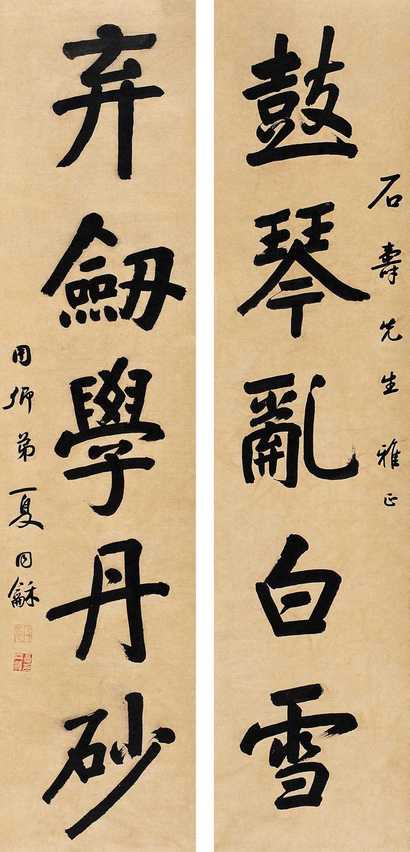 石壽先生雅正
鼓琴亂白雪
弃劒學丹砂
用卿弟夏同龢